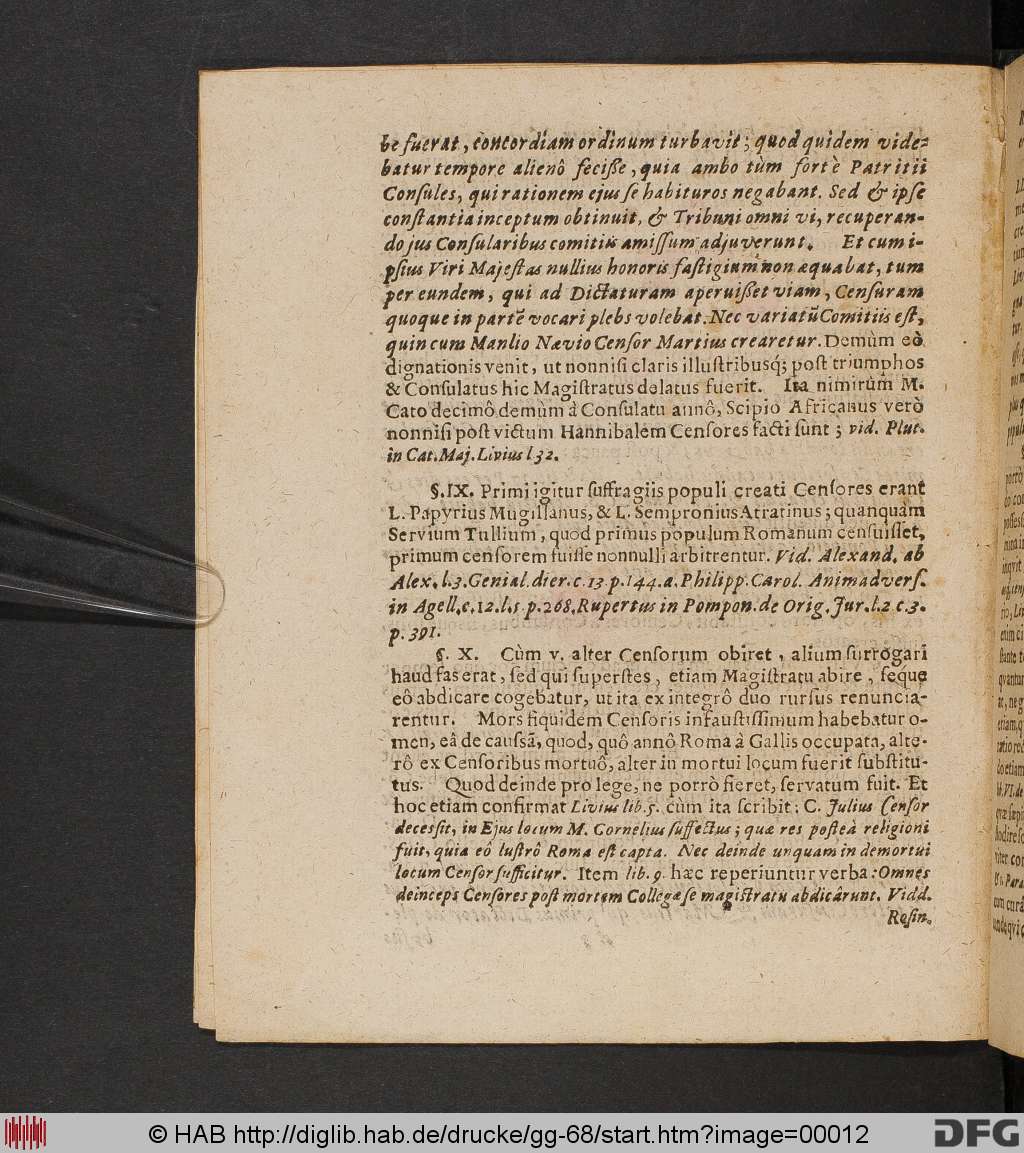 be fuerat, concordiam ordinum turbavit; quod quidem vide-
batur tempore alienô feciſſe, quia ambo tùm fortè Patritii
Conſules, qui rationem ejus ſe habituros negabant. Sed & ipſe
conſtantia inceptum obtinuit, & Tribuni omni vi, recuperan-
do jus Conſularibus comitiis amiſſum adjuverunt. Et cum i-
pſius Viri Majeſtas nullius honoris faſtigium non æquabat, tum
per eundem, qui ad Dictaturam aperuiſſet viam, Cenſuram
quoque in partē vocari plebs volebat. Nec variatū Comitiis eſt,
quin cum Manlio Nævio Cenſor Martius crearetur. Demùm eò
dignationis venit, ut nonniſi claris illuſtribusq́; poſt triumphos
& Conſulatus hic Magiſtratus delatus fuerit. Ita nimirùm M.
Cato decimô demùm â Conſulatu annô, Scipio Africanus verò
nonniſi poſt victum Hannibalem Cenſores facti ſunt; vid. Plut.
in Cat. Maj. Livius l 32.
§. IX. Primi igitur ſuffragiis populi creati Cenſores erant
L. Papyrius Mugillanus, & L. Sempronius Atratinus; quanquam
Servium Tullium, quod primus populum Romanum cenſuiſſet,
primum cenſorem fuiſſe nonnulli arbitrentur. Vid. Alexand. ab
Alex. l. 3. Genial. dier. c. 13 p. 144. a. Philipp. Carol. Animadverſ.
in Agell. c. 12. l. 5 p. 268. Rupertus in Pompon. de Orig. Jur. l. 2 c. 3.
p. 391.
§. X. Cùm v. alter Cenſorum obiret, alium ſurrogari
haud fas erat, ſed qui ſuperſtes, etiam Magiſtratu abire, ſeque
eô abdicare cogebatur, ut ita ex integrô duo rurſus renuncia-
rentur. Mors ſiquidem Cenſoris infauſtiſſimum habebatur o-
men, eâ de cauſſâ, quod, quô annô Roma à Gallis occupata, alte-
rô ex Cenſoribus mortuô, alter in mortui locum fuerit ſubſtitu-
tus. Quod deinde pro lege, ne porrò fieret, ſervatum fuit. Et
hoc etiam confirmat Livius lib. 5. cùm ita ſcribit: C. Julius Cenſor
deceſſit, in Ejus locum M. Cornelius ſuffectus; quæ res poſteà religioni
fuit, quia eô luſtrô Roma eſt capta. Nec deinde unquam in demortui
locum Cenſor ſufficitur. Item lib. 9. hæc reperiuntur verba: Omnes
deinceps Cenſores poſt mortem Collegæ ſe magiſtratu abdicârunt. Vidd.
Roſin.
© HAB http://diglib.hab.de/drucke/gg-68/start.htm?image=00012
DFG